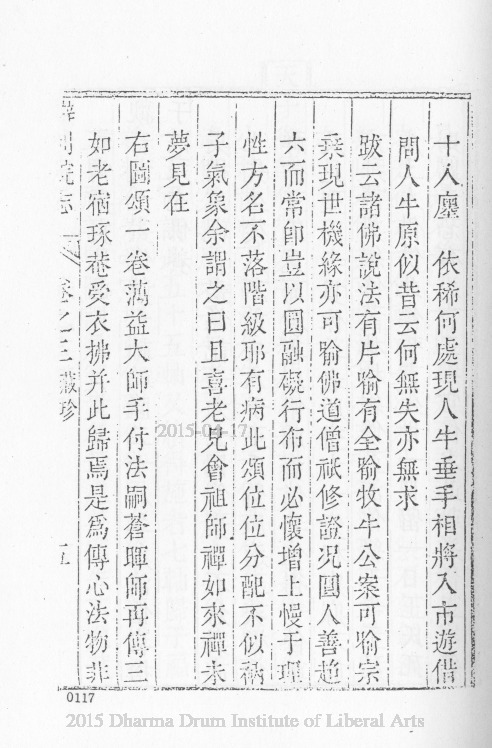 十入廛　依稀何處現人牛垂手相將入市遊借
問人牛原似昔云何無失亦無求
跋云諸佛說法有片喻有全喻牧牛公案可喻宗
乘現世機緣亦可喻佛道僧祇修證况圓人善趨
六而常卽豈以圓融礙行布而必懷增上慢于理
性方名不落階級耶有病此頌位位分配不似衲
子氣象余謂之曰且喜老兄會祖師禪如來禪未
夢見在
右圖頌一卷蕅益大師手付法嗣蒼暉師再傳三
如老宿琢菴受衣拂并此歸焉是爲傳心法物非
志 卷之三 藏珍 五
2015-04-17
0117
2015 Dharma Drum Institute of Liberal Arts